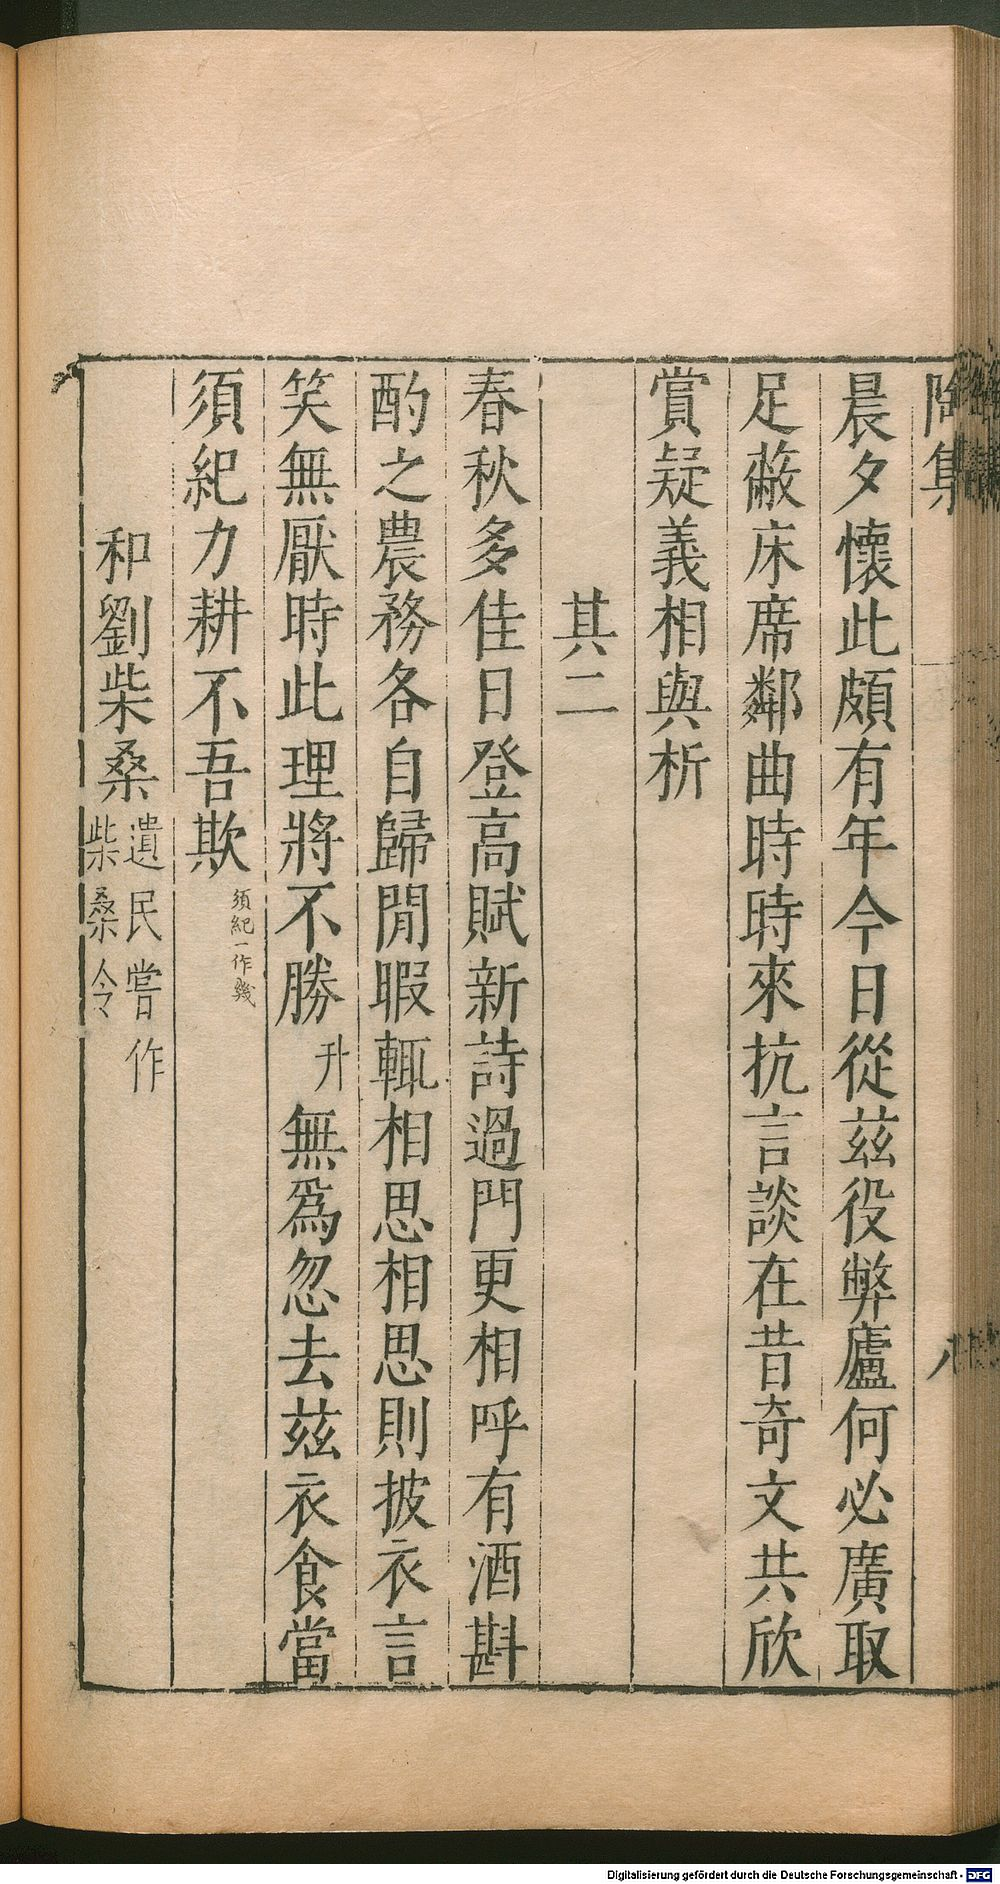 陶集
八
晨夕懷此頗有年今日從茲役弊廬何必廣取
足蔽床席鄰曲時時來抗言談在昔奇文共欣
賞疑義相與析
其二
春秋多佳日登高賦新詩過門更相呼有酒斟
酌之農務各自歸閒暇輒相思相思則披衣言
笑無厭時此理將不勝升無為忽去茲衣食當
須紀力耕不吾欺須紀一作幾
和劉柴桑遺民嘗作柴桑令
Digitalisierung gefördert durch die Deutsche Forschungsgemeinschaft - DFG